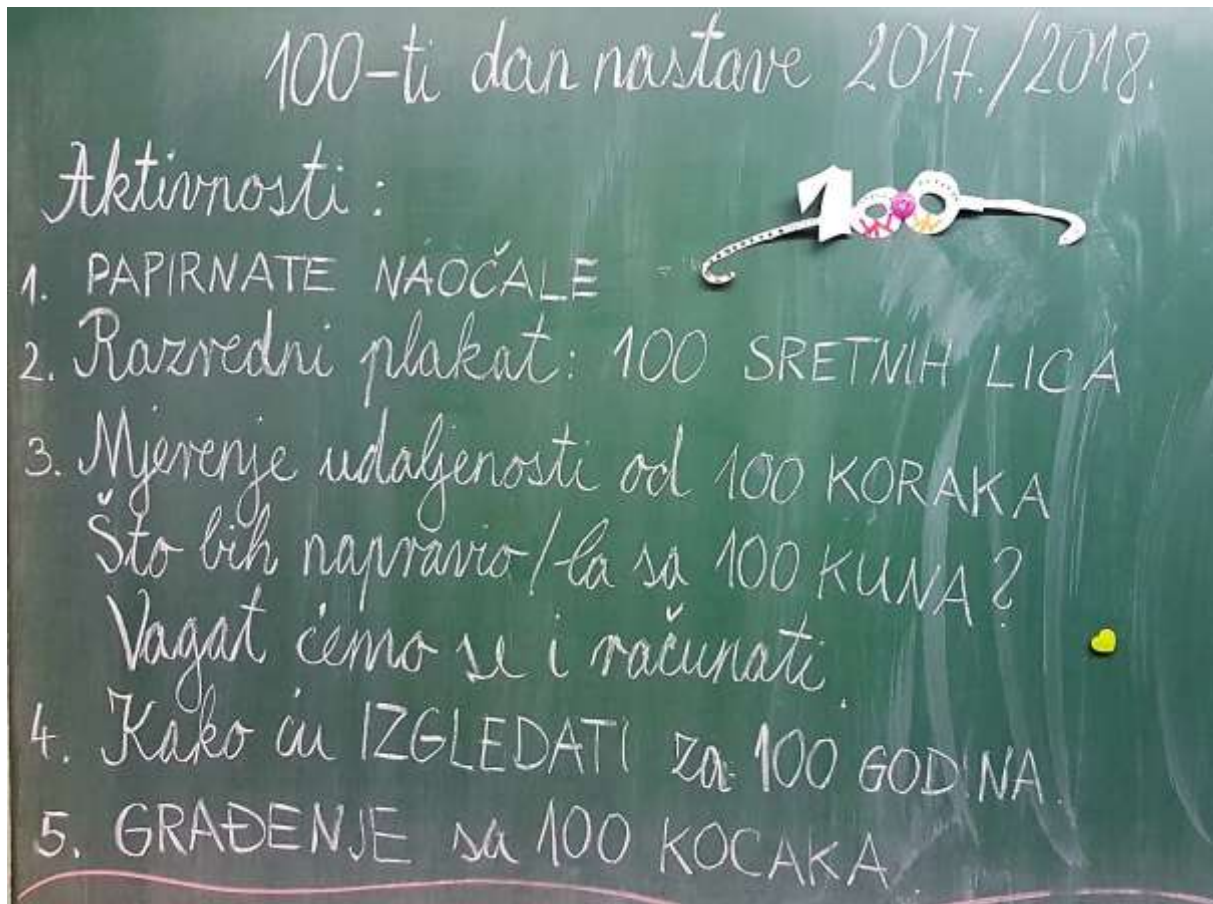 100-ti dan nastave 2017./2018.
Aktivnosti:
100
1. PAPIRNATE NAOČALE
2. Razredni plakat: 100 SRETNIH LICA
3. Mjerenje udaljenosti od 100 KORAKA
Što bih napravio/la sa 100 KUNA?
Vagat ćemo se i računati.
4. Kako ću IZGLEDATI za 100 GODINA.
5. GRAĐENJE sa 100 KOCAKA.